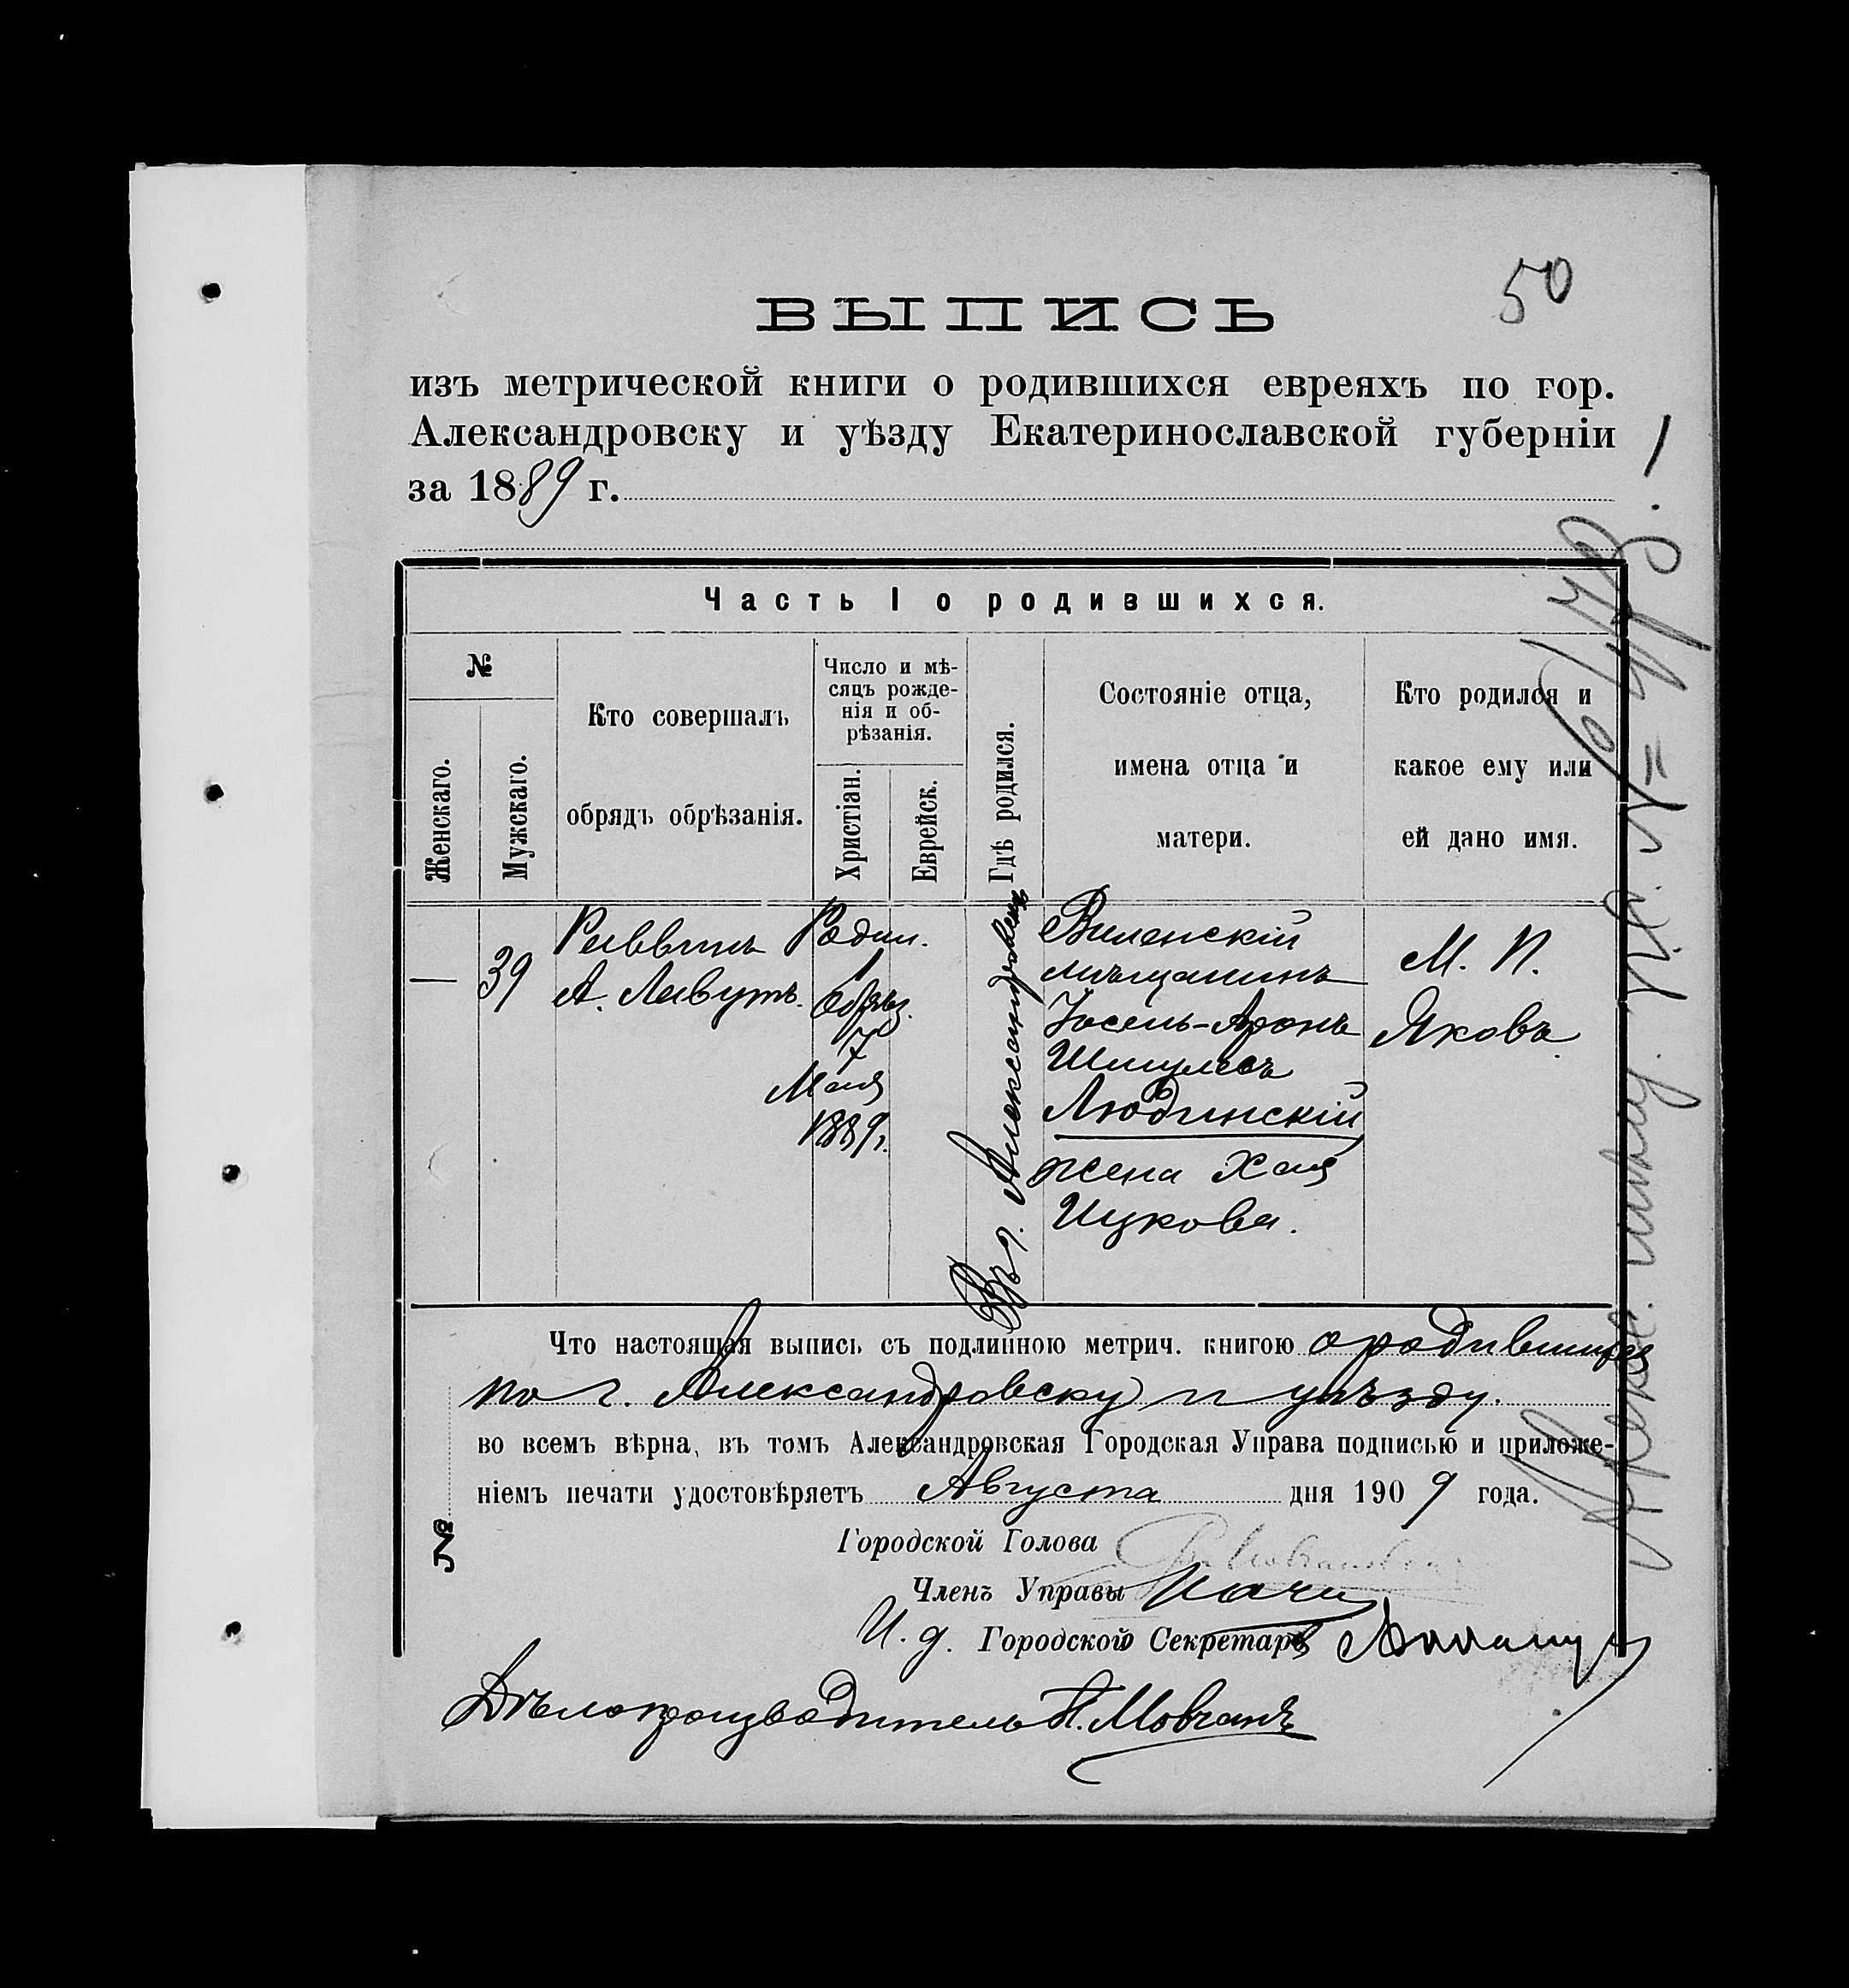 50
ВЫПИСЬ
изъ метрической книги о родившихся евреяхъ по гор.
Александровску и уѣзду Екатеринославской губерніи
за 1889 г.
Часть I о родившихся.
№
Женскаго.
Мужскаго.
Кто совершалъ
обрядъ обрѣзанія.
Число и мѣ-
сяцъ рожде-
нія и об-
рѣзанія.
Христіан.
Еврейск.
Гдѣ родился.
Состояніе отца,
имена отца и
матери.
Кто родился и
какое ему или
ей дано имя.
—
39
Раввинъ
А. Лавутъ.
Родил.
1
Обрѣз.
7
Мая
1889г.
Въ г. Александровскѣ
Виленскій
мѣщанинъ
Іосель-Аронъ
Шмулевъ
Людвинскій
жена Хая
Ицкова.
М. П.
Яковъ.
Что настоящая выпись съ подлинною метрич. книгою о родившихся
по г. Александровску и уѣзду.
во всемъ вѣрна, въ томъ Александровская Городская Управа подписью и приложе-
ніемъ печати удостовѣряетъ Августа дня 1909 года.
№
Городской Голова
Членъ Управы
И. д. Городской Секретарь
Дѣлопроизводитель П. Мовчанъ